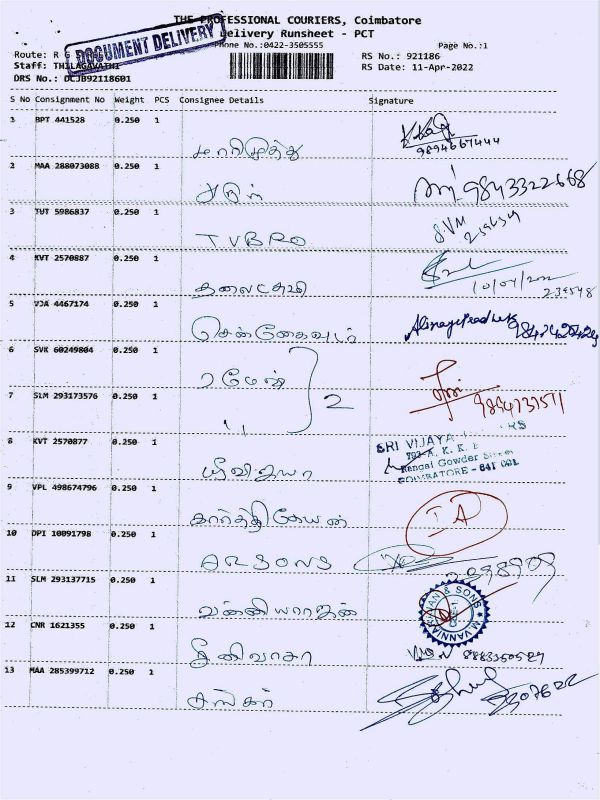 THE PROFESSIONAL COURIERS, Coimbatore
Delivery Runsheet - PCT
DOCUMENT DELIVERY
Phone No.:0422-3505555 Page No.:1
Route: R G RS No.: 921186
Staff: THILAGAVATHI RS Date: 11-Apr-2022
DRS No.: DCJB92118601
S No Consignment No Weight PCS Consignee Details Signature
1 BPT 441528 0.250 1
மாரிமுத்து 9894667444
2 MAA 288073088 0.250 1
அருள் 9843322668
3 TUT 5986837 0.250 1
TVBRO S.VM
4 KVT 2570887 0.250 1
239548
5 VJA 4467174 0.250 1
6 SVK 60249804 0.250 1
ரமேஷ் 2
7 SLM 293173576 0.250 1
〃
8 KVT 2570877 0.250 1
ஸ்ரீவிஜயா
SRI VIJAYA RS
793-A, K. K.
Rengai Gowder Street
COIMBATORE - 641 001.
9 VPL 498674796 0.250 1
கார்த்திகேயன் IA
10 DPI 10091798 0.250 1
11 SLM 293137715 0.250 1
வன்னியராஜன்
M. VANNIARAJAN & SONS
12 CNR 1621355 0.250 1
ஸ்ரீனிவாசா
13 MAA 285399712 0.250 1
சங்கர்